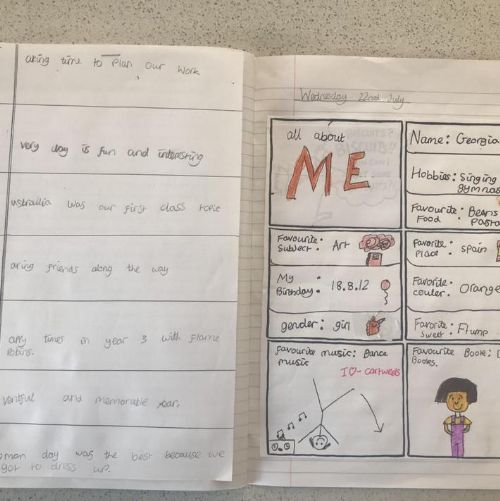 aking time to plan our work
very day is fun and interesting
ustrailia was our first class topic
aring friends along the way
appy times in year 3 with flame
robins.
ventful and memorable year.
oman day was the best because we
got to dress up.
Wednesday 22nd July
all about
ME
Name: Georgia
Hobbies: Singing
gymnas
Favourite Food: Beans
Pasta
Favourite Subject: Art
Favorite Place: spain
My Birthday: 18.8.12
Favorite couler: Orange
gender: girl
Favorite sweet: Flump
favourite music: Dance
music
I ♡ cartweels
Favourite Book:
Books.